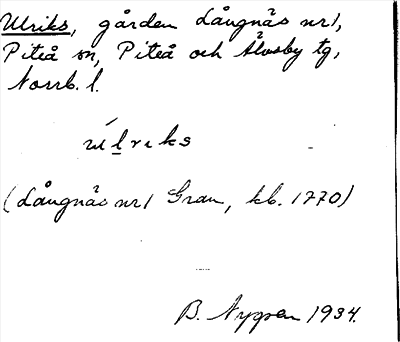 Ulriks, gården Långnäs nr 1,
Piteå sn, Piteå och Älvsby tg,
Norrb. l.
ulriks
(Långnäs nr 1 Gran, kb. 1770)
B. Nygren 1934.